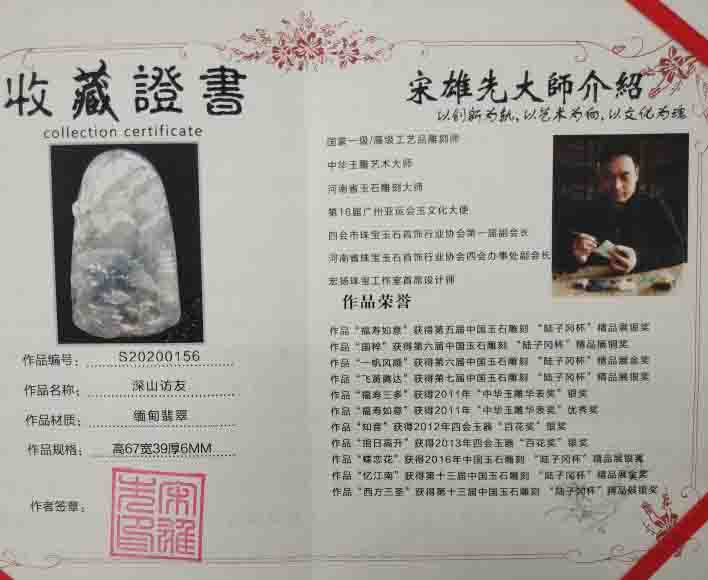 收藏證書
collection certificate
作品编号: S20200156
作品名称: 深山访友
作品材质: 缅甸翡翠
作品规格: 高67宽39厚6MM
作者签章:
宋雄先印
宋雄先大師介紹
以创新为轨,以艺术为向,以文化为魂
国家一级/高级工艺品雕刻师
中华玉雕艺术大师
河南省玉石雕刻大师
第16届广州亚运会玉文化大使
四会市珠宝玉石首饰行业协会第一届副会长
河南省珠宝玉石首饰行业协会四会办事处副会长
宏扬珠宝工作室首席设计师
作品荣誉
作品“福寿如意”获得第五届中国玉石雕刻 “陆子冈杯”精品展银奖
作品“国粹”获得第六届中国玉石雕刻 “陆子冈杯”精品展铜奖
作品“一帆风顺”获得第六届中国玉石雕刻 “陆子冈杯”精品展金奖
作品“飞黄腾达”获得第七届中国玉石雕刻 “陆子冈杯”精品展银奖
作品“福寿三多”获得2011年“中华玉雕华表奖”银奖
作品“福寿如意”获得2011年“中华玉雕华表奖”优秀奖
作品“知音”获得2012年四会玉器“百花奖”银奖
作品“指日高升”获得2013年四会玉器“百花奖”银奖
作品“蝶恋花”获得2016年中国玉石雕刻 “陆子冈杯”精品展银奖
作品“忆江南”获得第十三届中国玉石雕刻 “陆子冈杯”精品展金奖
作品“西方三圣”获得第十三届中国玉石雕刻 “陆子冈杯”精品展银奖